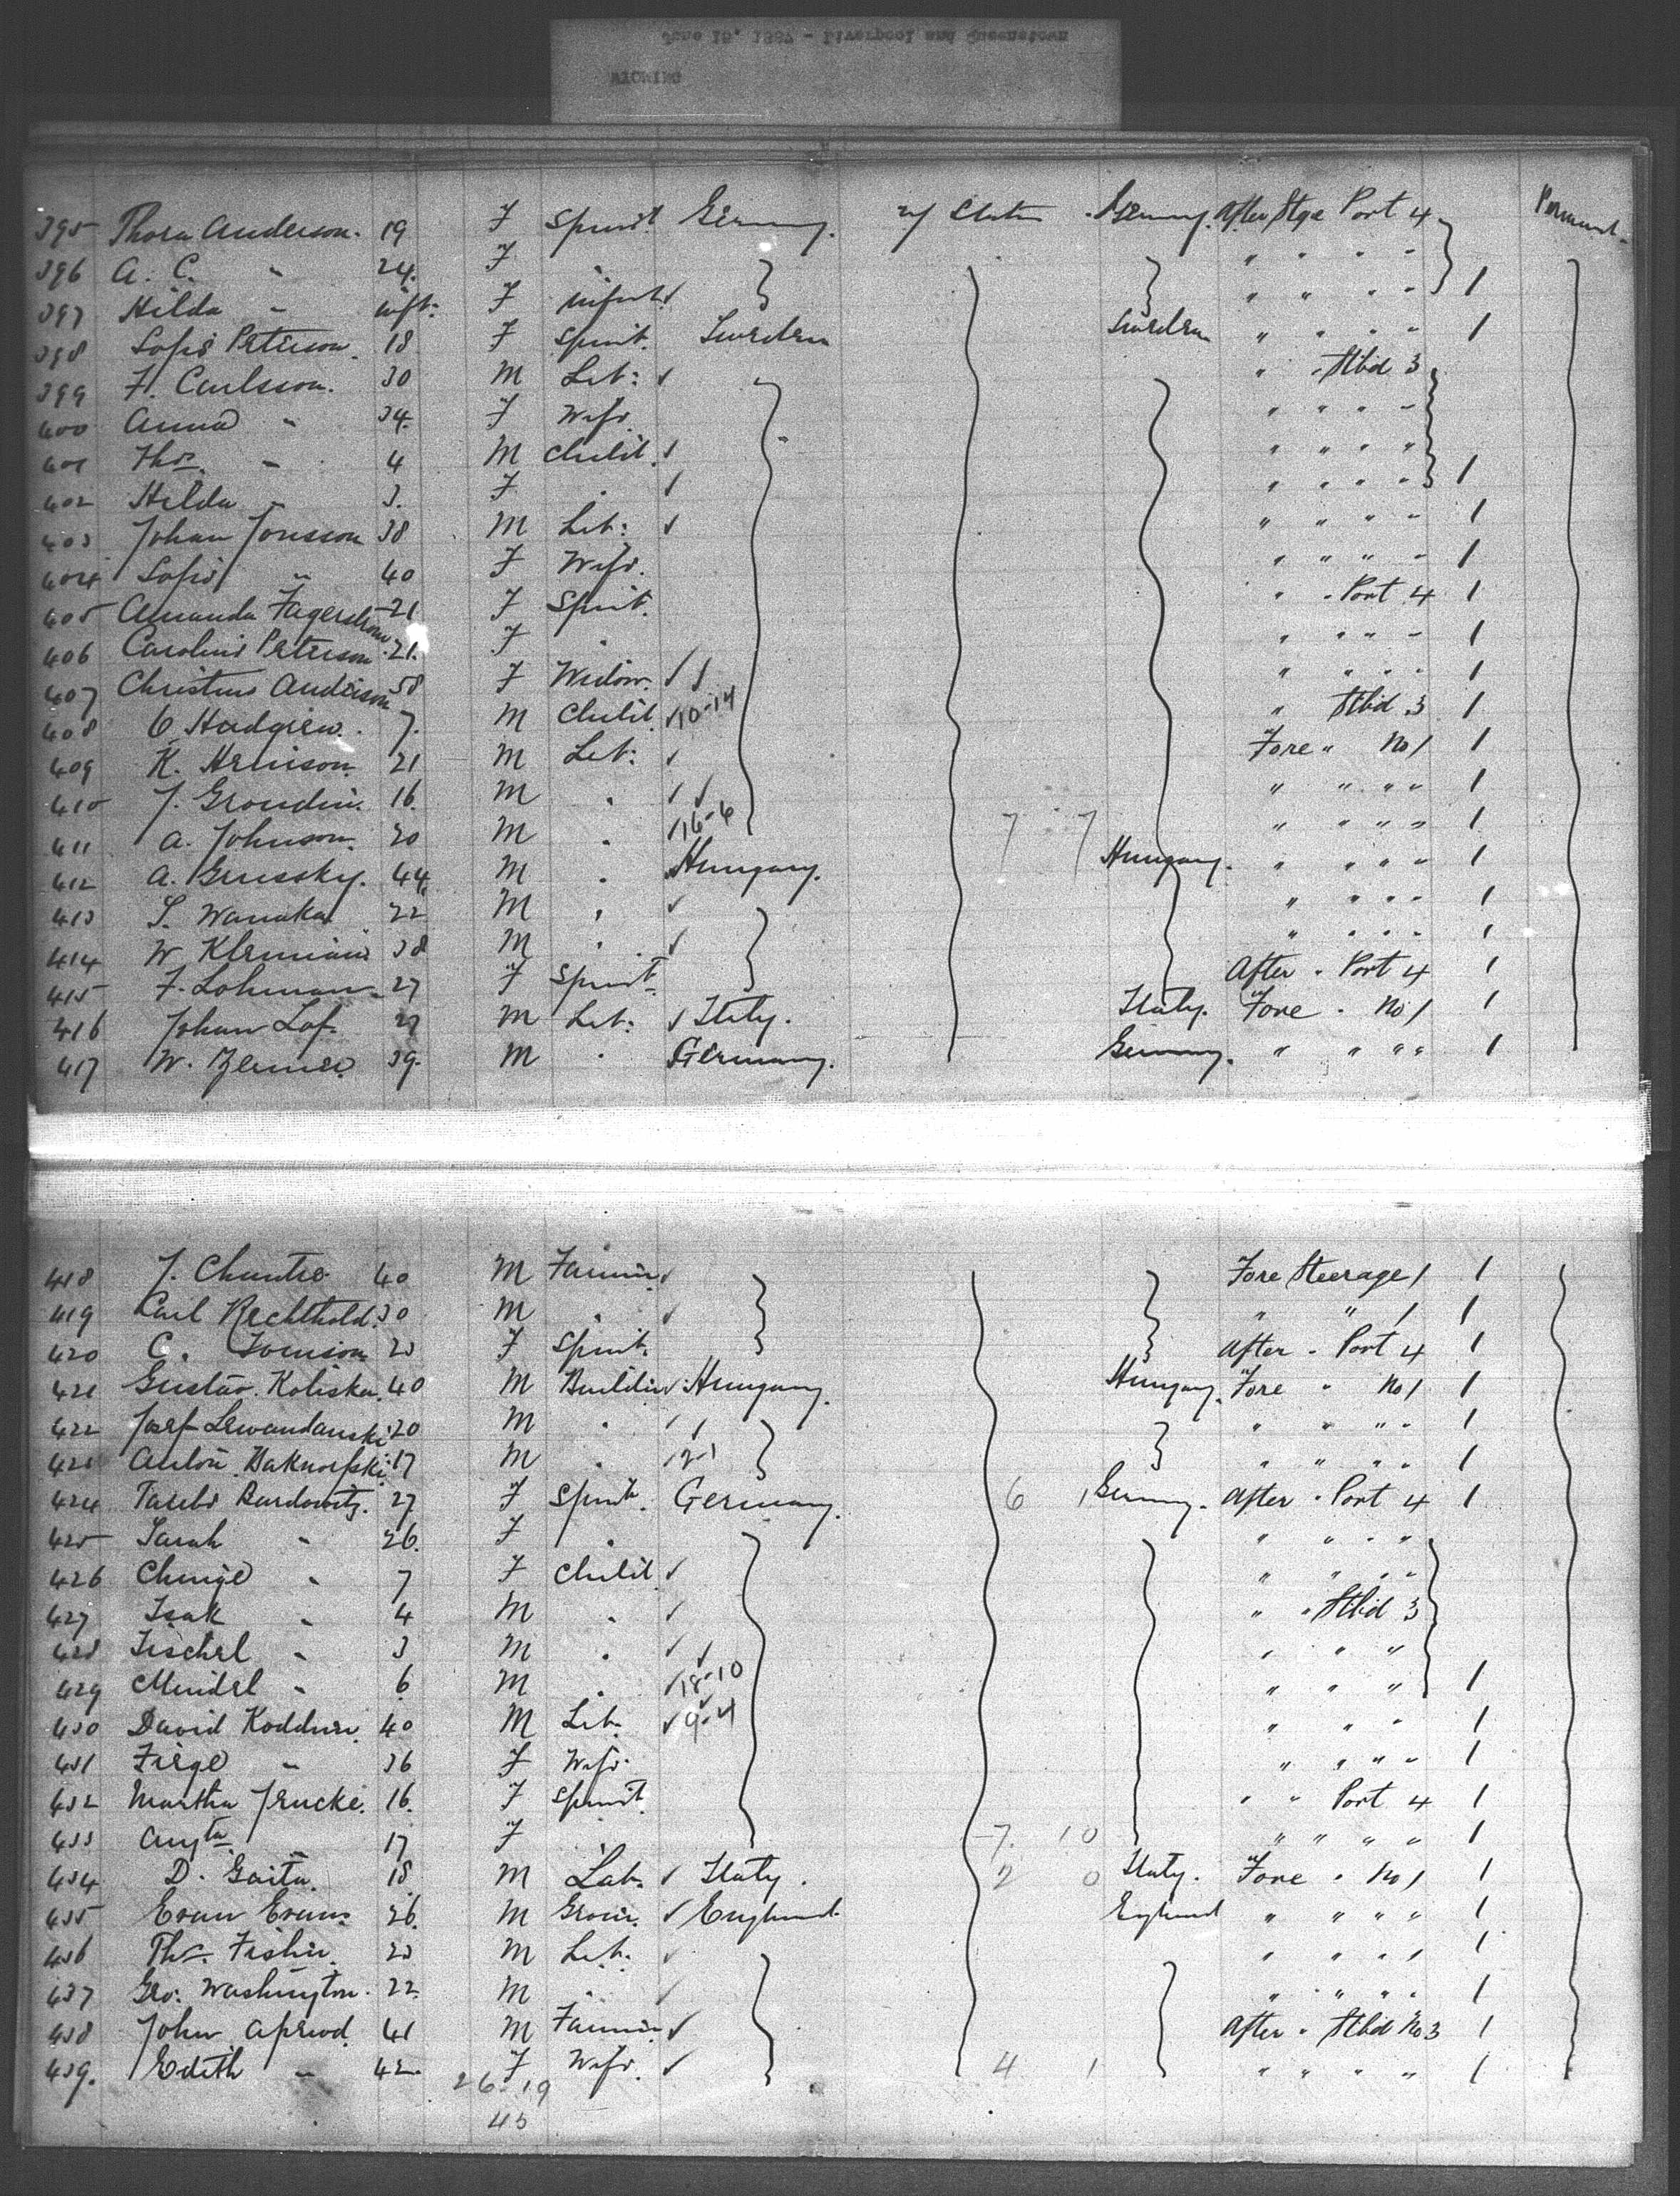 June 16, 1887 - Liverpool and Queenstown
WYOMING
395 Thora Anderson. 19 F Spinst. Germany. U/ States Germany. After Stge Port 4 Permanent
396 A. C. " 24. F " " " " "
397 Hilda " inft. F infant ✓ " " " " 1
398 Sofie Peterson. 18 F Spinst. Sweden Sweden " " " " 1
399 F. Carlsson. 30 M Lab: ✓ " " Stbd 3
400 Anna " 34. F Wife. " " " "
401 Thos. " 4 M Child. ✓ " " " "
402 Hilda " 3. F " ✓ " " " " 1
403 Johan Jonsson 38 M Lab: ✓ " " " " 1
404 Sofie " 40 F Wife. " " " " 1
405 Amanda Fagerstrom 21 F Spinst. " " Port 4 1
406 Caroline Peterson 21. F " " " " " 1
407 Christine Anderson 58 F Widow. ✓ ✓ " " " " 1
408 C. Hadgrew. 7. M Child. ✓ 10-14 " Stbd 3 1
409 K. Henison. 21 M Lab: ✓ Fore " No 1 1
410 J. Grondin. 16. M " ✓ ✓ " " " " 1
411 A. Johnson. 20 M " ✓ 16-6 7 7 " " " " 1
412 A. Grussky. 44. M " Hungary. Hungary. " " " " 1
413 S. Wanaka 22 M " ✓ " " " " 1
414 W Klemime 38 M " ✓ " " " " 1
415 F. Lohman 27 F Spinst. After " Port 4 1
416 Johan Lof. 27 M Lab: ✓ Italy. Italy. Fore " No 1 1
417 W. Zerner. 39. M " Germany. Germany. " " " " 1
418 J. Chantre 40 M Farmer ✓ Fore Steerage 1 1
419 Carl Rechthold. 30 M " ✓ " " 1 1
420 C. Tomison 23 F Spinst. After " Port 4 1
421 Gustav. Koliska. 40 M Builder ✓ Hungary. Hungary. Fore " No 1 1
422 Josef Lewandanski 20 M " ✓ ✓ " " " " 1
423 Anton Baknorfski. 17 M " ✓ 2-1 " " " " 1
424 Taube Burdowitz. 27 F Spinst. Germany. 6 1 Germany. After " Port 4 1
425 Sarah " 26. F " " " " "
426 Chinge " 7 F Child. ✓ " " " "
427 Isak " 4 M " ✓ " " Stbd 3
428 Fischel " 3 M " ✓ ✓ " " "
429 Mendel " 6 M " ✓ 18-10 " " " 1
430 David Koddner. 40 M Lab. ✓ 9-4 " " " 1
431 Feige " 36 F Wife. " " " " 1
432 Martha Jencke. 16. F Spinst. " " Port 4 1
433 Augta " 17 F " 7. 10 " " " " 1
434 D. Gaita. 18 M Lab. ✓ Italy. 2 0 Italy. Fore " No 1 1
435 Evan Evans. 26. M Groom. ✓ England England " " " " 1
436 Thos. Fisher. 23 M Lab. ✓ " " " " 1
437 Geo. Washington. 22. M " ✓ " " " " 1
438 John Aprwod. 41 M Farmer ✓ After " Stbd No 3 1
439. Edith " 42 F Wife. ✓ 4 1 " " " " 1
26-19
45